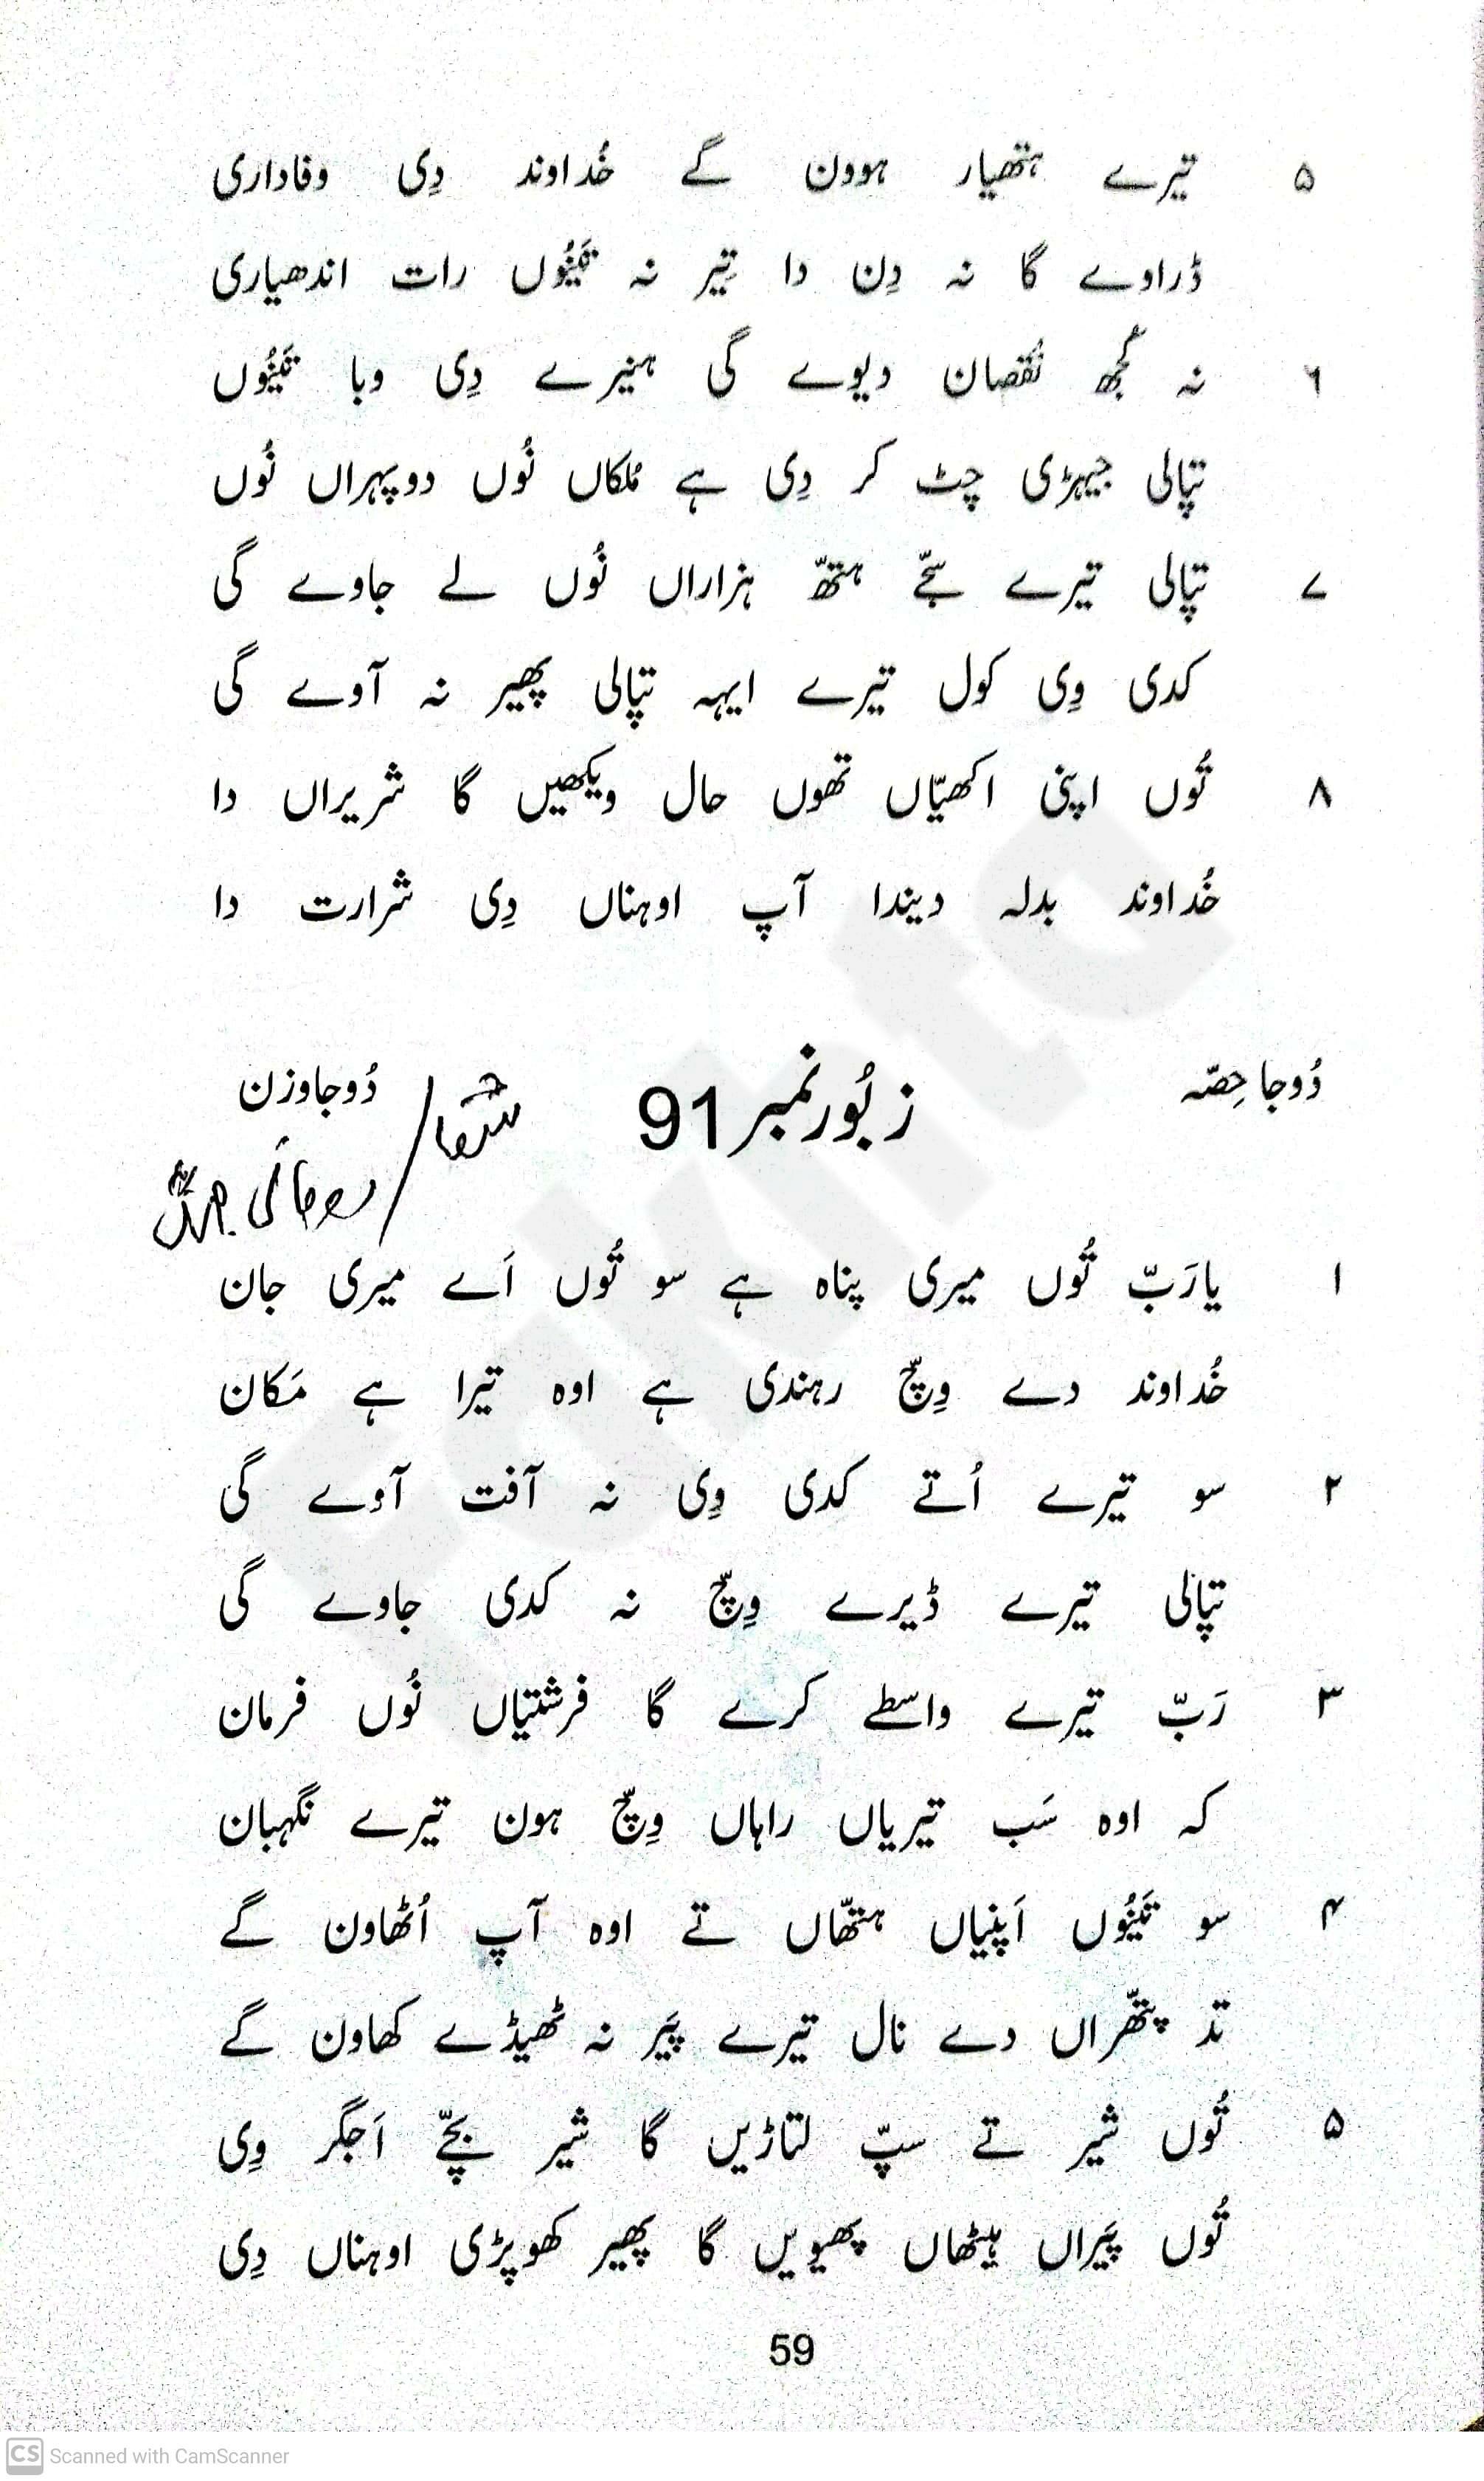 ۵ تیرے ہتھیار ہوون گے خُداوند دِی وفاداری
ڈراوے گا نہ دِن دا تِیر نہ تَینُوں رات اندھیاری
۶ نہ کُجھ نُقصان دیوے گی ہنیرے دِی وبا تَینُوں
تپالی جیہڑی چٹ کر دِی ہے مُلکاں نُوں دوپہراں نُوں
۷ تپالی تیرے سجّے ہتھّ ہزاراں نُوں لے جاوے گی
کدی وِی کول تیرے ایہہ تپالی پھیر نہ آوے گی
۸ تُوں اپنی اکھیّاں تھوں حال ویکھیں گا شریراں دا
خُداوند بدلہ دیندا آپ اوہناں دِی شرارت دا
دُوجا حِصّہ زبُور نمبر 91 دُوجا وزن
شفا /
۱ یا رَبّ تُوں میری پناہ ہے سو تُوں اَے میری جان
خُداوند دے وِچّ رہندی ہے اوہ تیرا ہے مَکان
۲ سو تیرے اُتے کدی وِی نہ آفت آوے گی
تپالی تیرے ڈیرے وِچّ نہ کدی جاوے گی
۳ رَبّ تیرے واسطے کرے گا فرشتیاں نُوں فرمان
کہ اوہ سَب تیریاں راہاں وِچّ ہون تیرے نگہبان
۴ سو تَینُوں اَپنیاں ہتھّاں تے اوہ آپ اُٹھاون گے
تد پتھّراں دے نال تیرے پَیر نہ ٹھیڈے کھاون گے
۵ تُوں شیر تے سپّ لتاڑیں گا شیر بچّے اَجگر وِی
تُوں پَیراں ہیٹھاں پھیویں گا پھیر کھوپڑی اوہناں دِی
59
Fakhta
CS Scanned with CamScanner